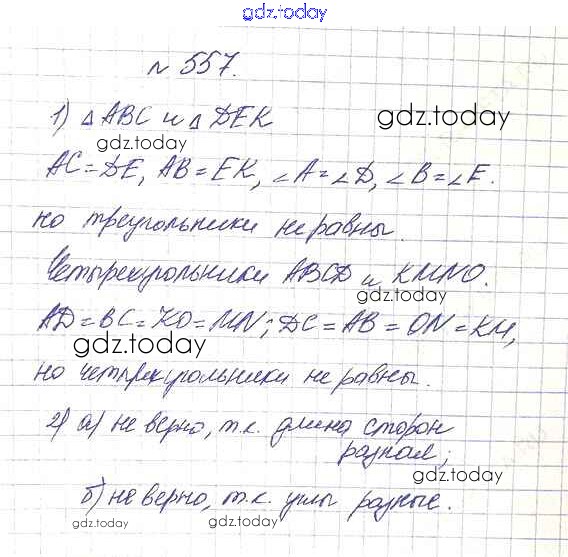 gdz.today
№ 557.
1) △ ABC и △ DEK
gdz.today
gdz.today
AC = DE, AB = EK, ∠A = ∠D, ∠B = ∠E.
но треугольники не равны.
Четырехугольники ABCD и KMNO.
gdz.today
AD = BC = KO = MN; DC = AB = ON = KM,
gdz.today
но четырехугольники не равны.
2) а) не верно, т.к. длина сторон
разная;
gdz.today
б) не верно, т.к. углы разные.
gdz.today
gdz.today